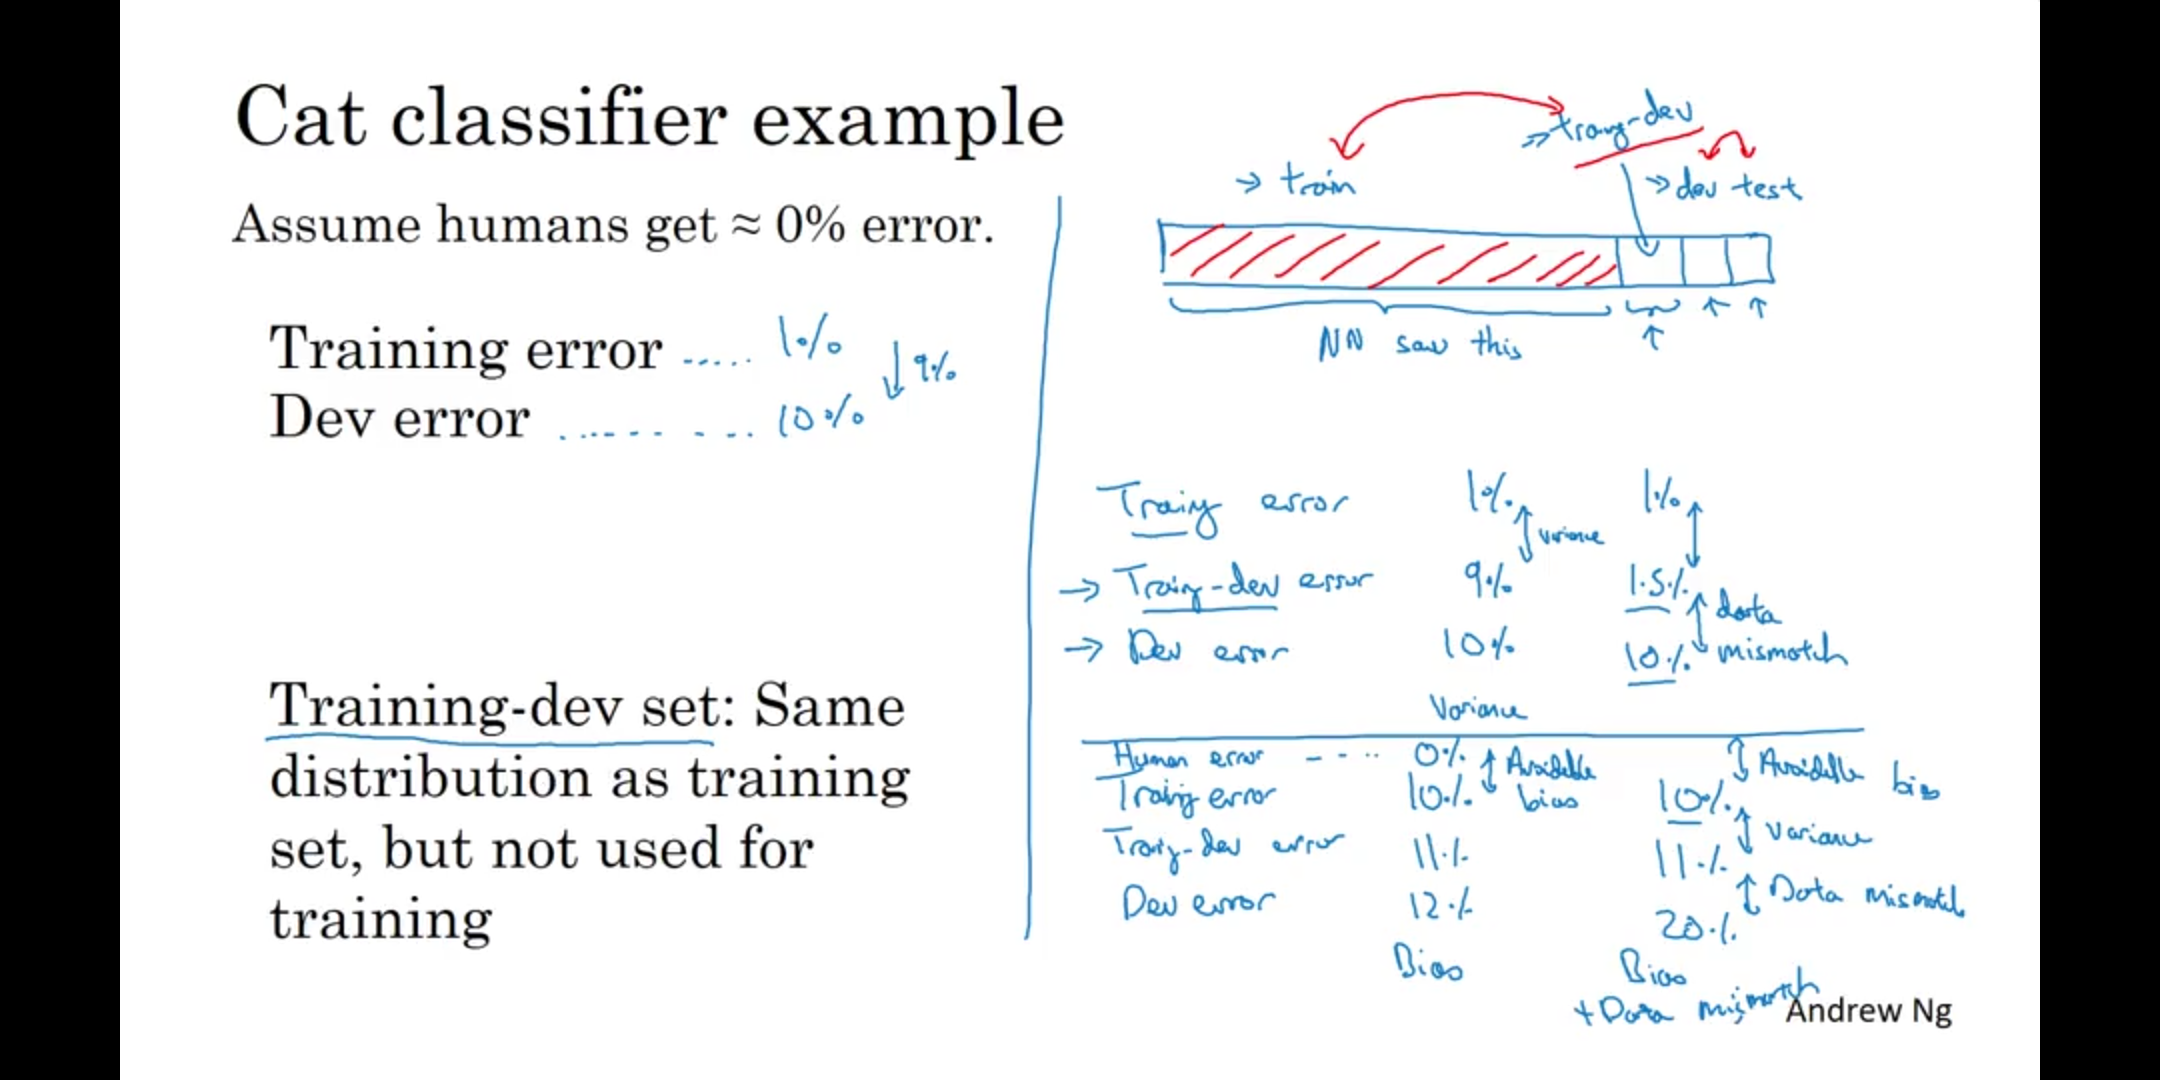 Cat classifier example
Assume humans get ≈ 0% error.
Training error ..... 1%
↓ 9%
Dev error ......... 10%
Training-dev set: Same
distribution as training
set, but not used for
training
→ train
→ traing-dev
→ dev test
NN saw this
Traing error 1% 1%
variance
→ Traing-dev error 9% 1.5%
data
→ Dev error 10% 10% mismatch
Variance
Human error ---- 0% Avoidable Avoidable bias
Traing error 10% bias 10%
variance
Traing-dev error 11% 11%
Data mismatch
Dev error 12% 20%
Bias Bias
+ Data mismatch
Andrew Ng